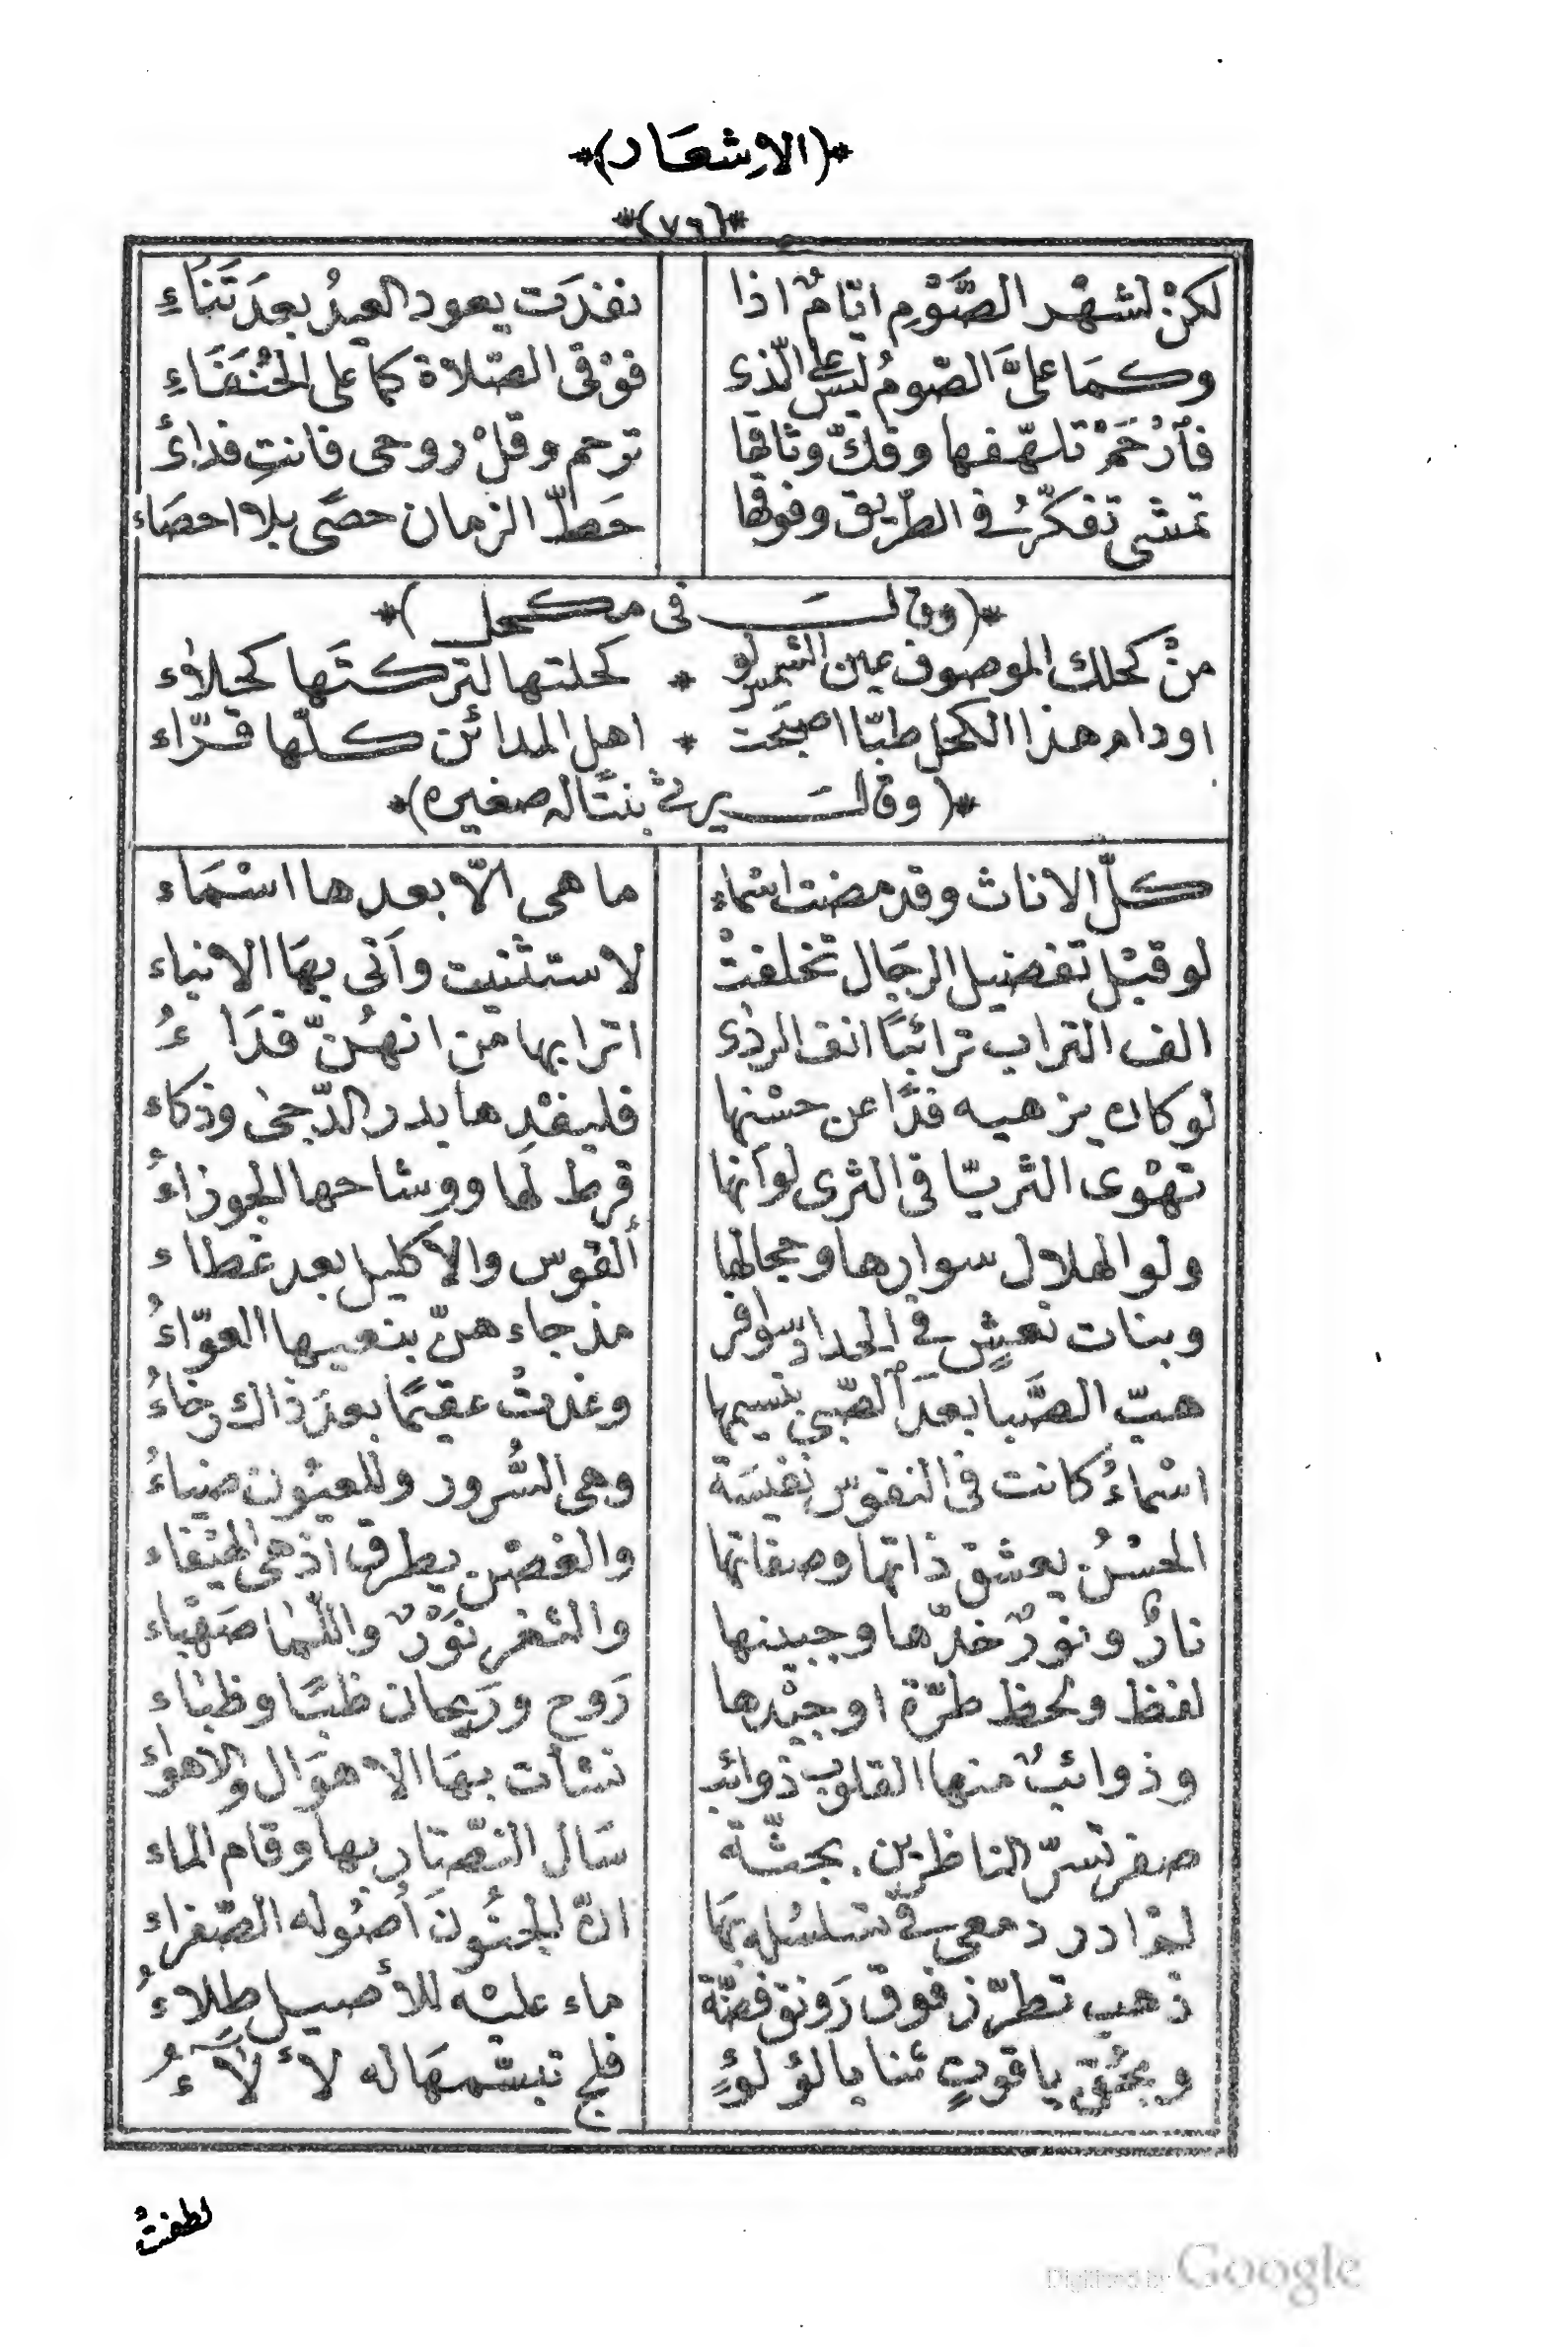 *(الاشعار)*
*(٧٦)*
لكنْ لشهْر الصَّوْمِ ايّامٌ اذا نفذَت يعود العيدُ بعدَ تَنَاءِ
وكمَا علىَّ الصّومُ ليس على الّذى فوْقى الصّلاة كما على الحُنَفَاءِ
فٱرْحَمْ تلهّفها وفكّ وثاقها ترحم وقلْ روحى فانتِ فداءُ
تمشى تفكّرُ فى الطّريق وفوقها حَطّ الزمان حصًى بلا احصَاء
*(وقالَ فى مكحل)*
منْ كحلك الموصوف عين الشمس لو * كحلتها لتركتَها كحلاء
اودام هذا الكحل طبّا اصبحَت * اهل المدائن كلّها قرّاء
*(وقالَ يرثى بنتًا له صغيره)*
كلّ الاناث وقد مضت اسْماء ما هى الّا بعدها اسْمَاء
لو قبْل تفضيل الرجَال تخلفتْ لاستثنيت وأتى بهَا الانباء
الف التراب ترائبًا انف الردى اترابها من انهُنّ فدَاءُ
لو كان يزهيه فدًا عن حسْنها فليفْدِها بدر الدّجى وذكاء
تهْوى الثريّا فى الثرى لو أنها قرط لها ووشاحها الجوزاءُ
ولو الهلال سوارها وحجالها ألقوس والاكليل بعد غطاء
وبنات نعشٍ فى الحداد سوافر مذ جاءهنّ بنعيها العوّاءُ
هبّ الصَّبا بعدَ الصّبى بنسيمها وغدتْ عقيمًا بعدَ ذاك رخاءُ
اسْماءُ كانت فى النفوس نفيسَة وهى السُّرور وللعيُون ضياءُ
الحسْنُ يعشق ذاتها وصفاتها والغصْن يطرق اذ هى الهيْفاء
نارٌ ونوْرٌ خدّها وجبينها والثغر نَوْرٌ واللّما صَهْباء
لفظ ولحظ طرّة او جيْدها رَوح ورَيحان ظبًا وظباء
وذوائبٌ منها القلوب ذوائب نشأت بهَا الاهوَال والاهواءُ
صفر تسرّ الناظرين بجثّة سَال النضّار بها وقام الماء
لم ادر دمعى فى تسلسُله بهَا انّ الجنُونَ اُصُوله الصّفراء
ذهب تطرّز فوق رَونق فضّة ماء عليْه للأصيل طِلاءُ
وبحُقّ ياقوتٍ ثنايا لؤلؤٍ فلج تبسّمهَا له لألآءُ
لطفتُ
Digitized by Google